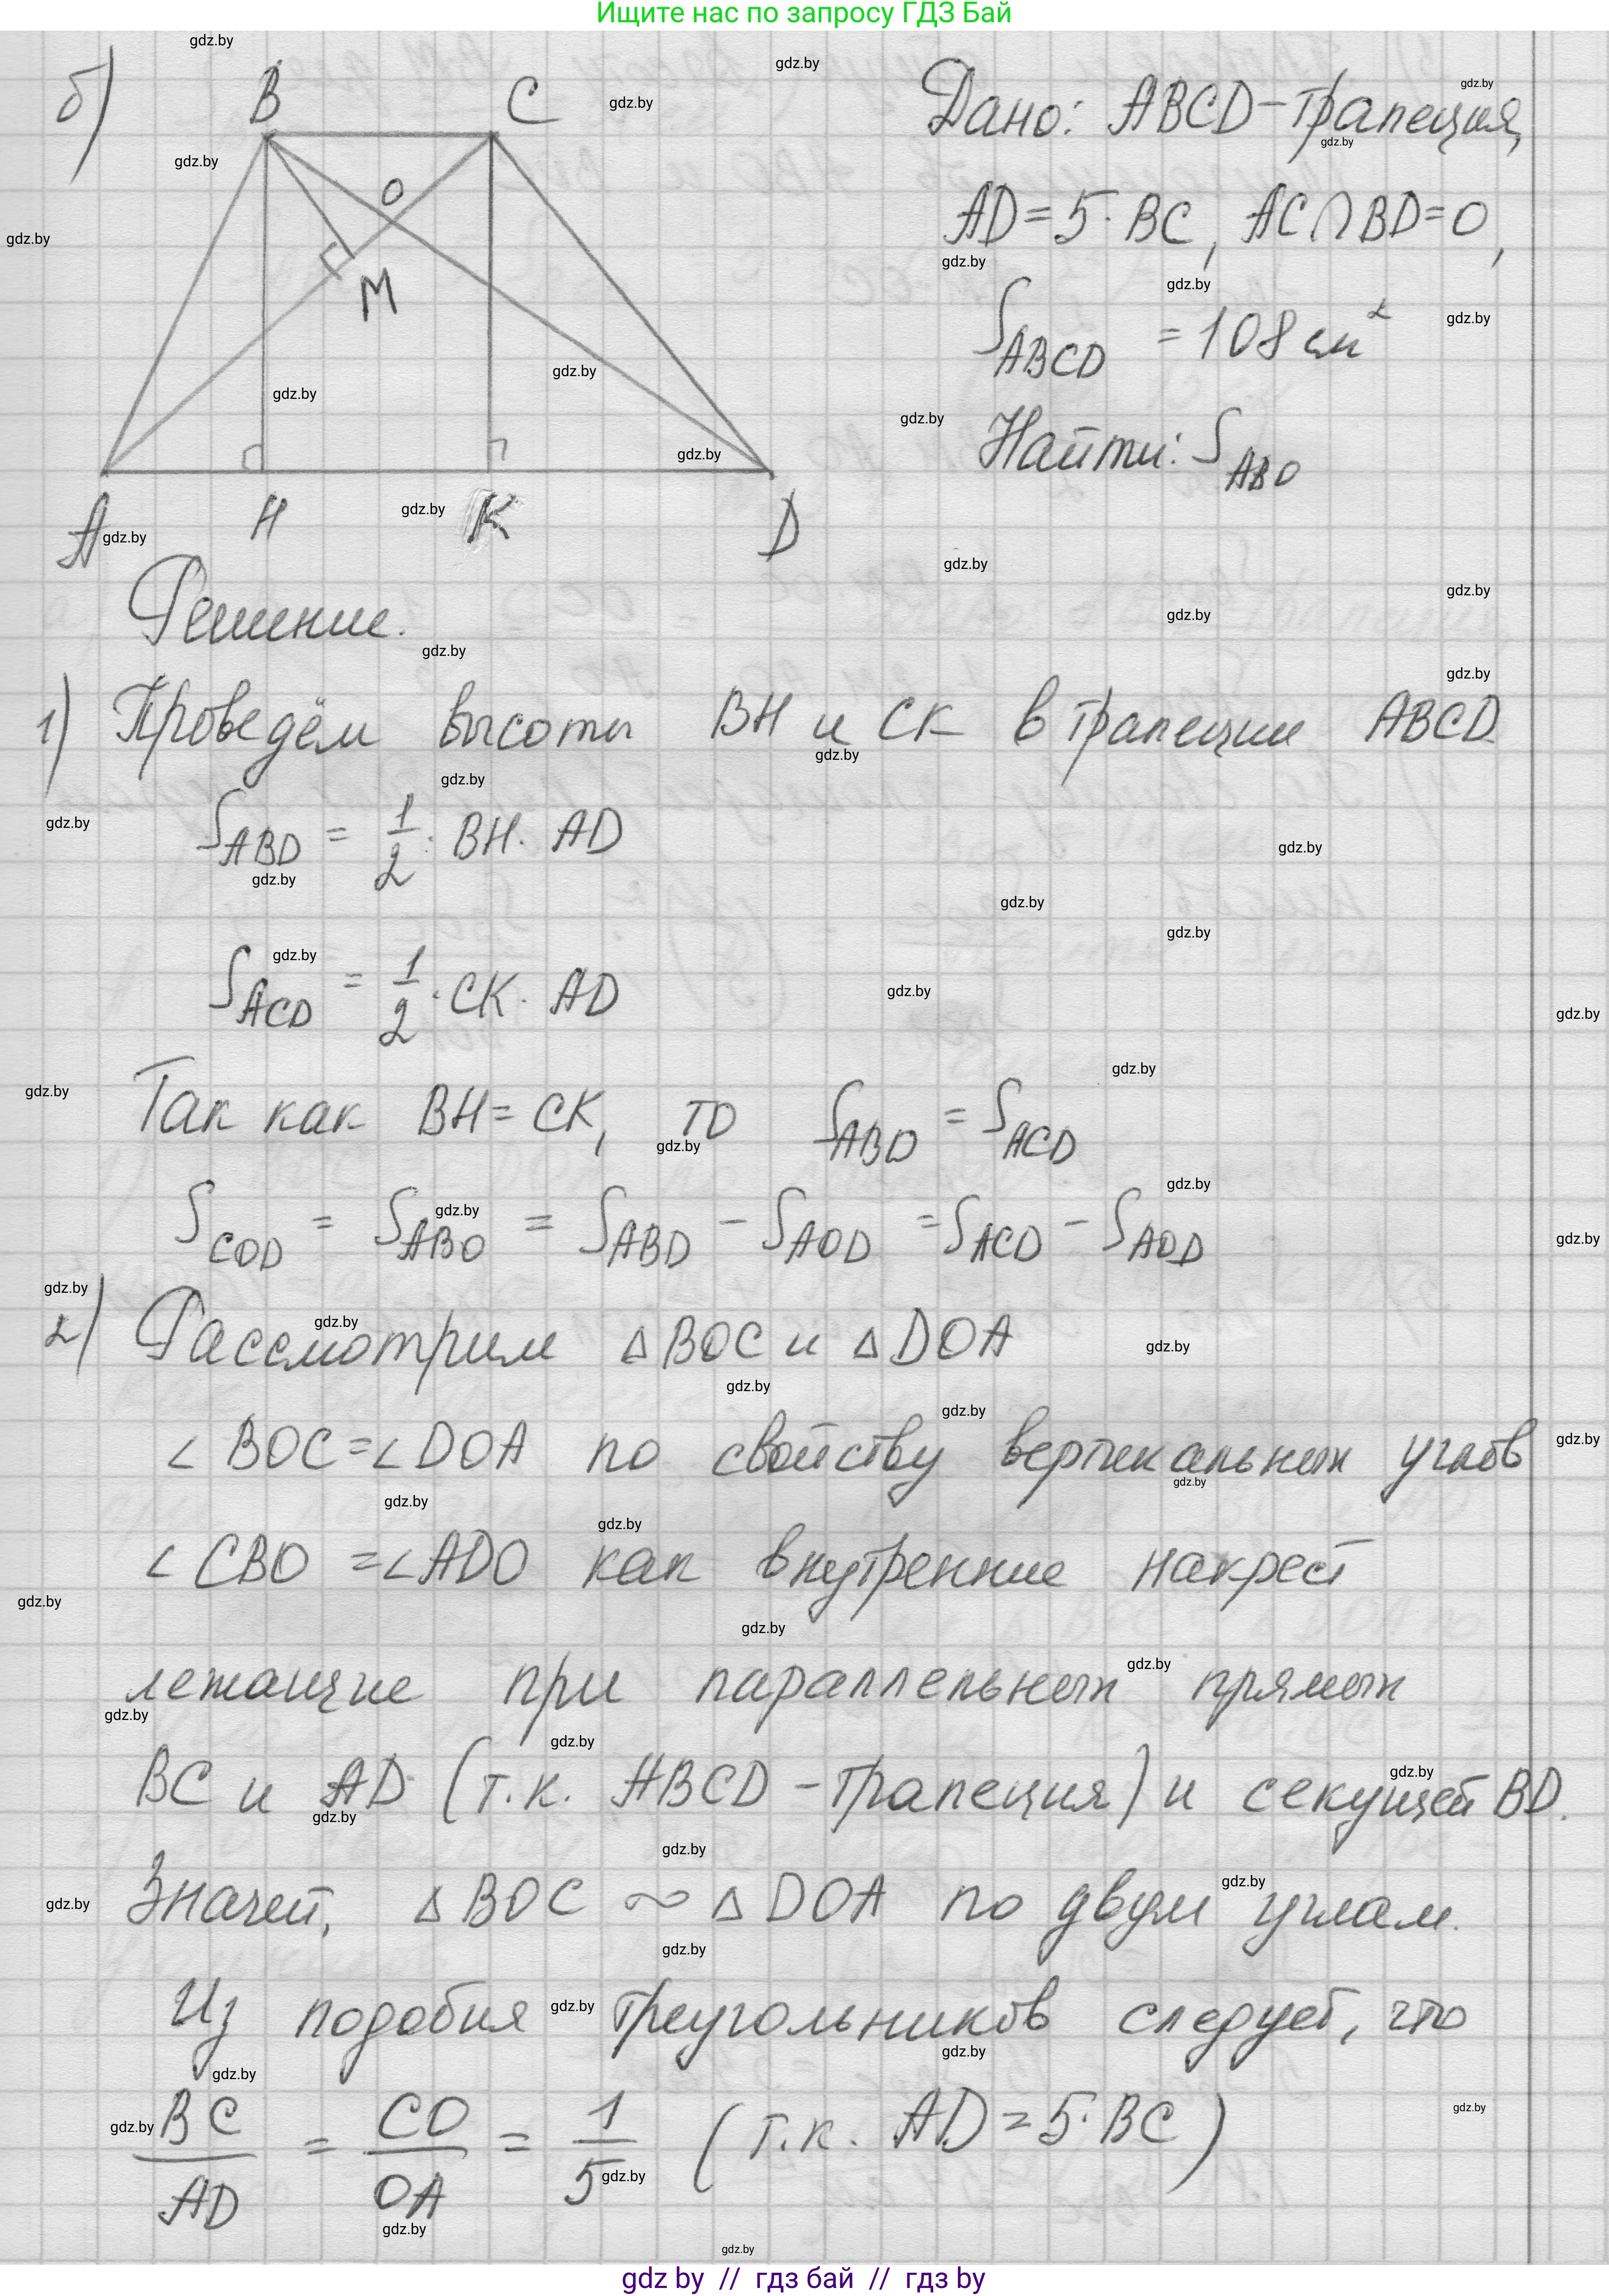 Ищите нас по запросу ГДЗ Бай
б)
B C
O
M
A H K D
Дано: ABCD-трапеция,
AD=5·BC, AC∩BD=O,
S_ABCD = 108 см²
Найти: S_ABO
Решение.
1) Проведём высоты BH и CK в трапеции ABCD
S_ABD = 1/2 · BH · AD
S_ACD = 1/2 · CK · AD
Так как BH = CK, то S_ABD = S_ACD
S_COD = S_ABO = S_ABD - S_AOD = S_ACD - S_AOD
2) Рассмотрим △BOC и △DOA
∠BOC=∠DOA по свойству вертикальных углов
∠CBO =∠ADO как внутренние накрест
лежащие при параллельных прямых
BC и AD (т.к. ABCD-трапеция) и секущей BD.
Значит, △BOC ~ △DOA по двум углам.
Из подобия треугольников следует, что
BC/AD = CO/OA = 1/5 (т.к. AD=5·BC)
gdz by // гдз бай // гдз by